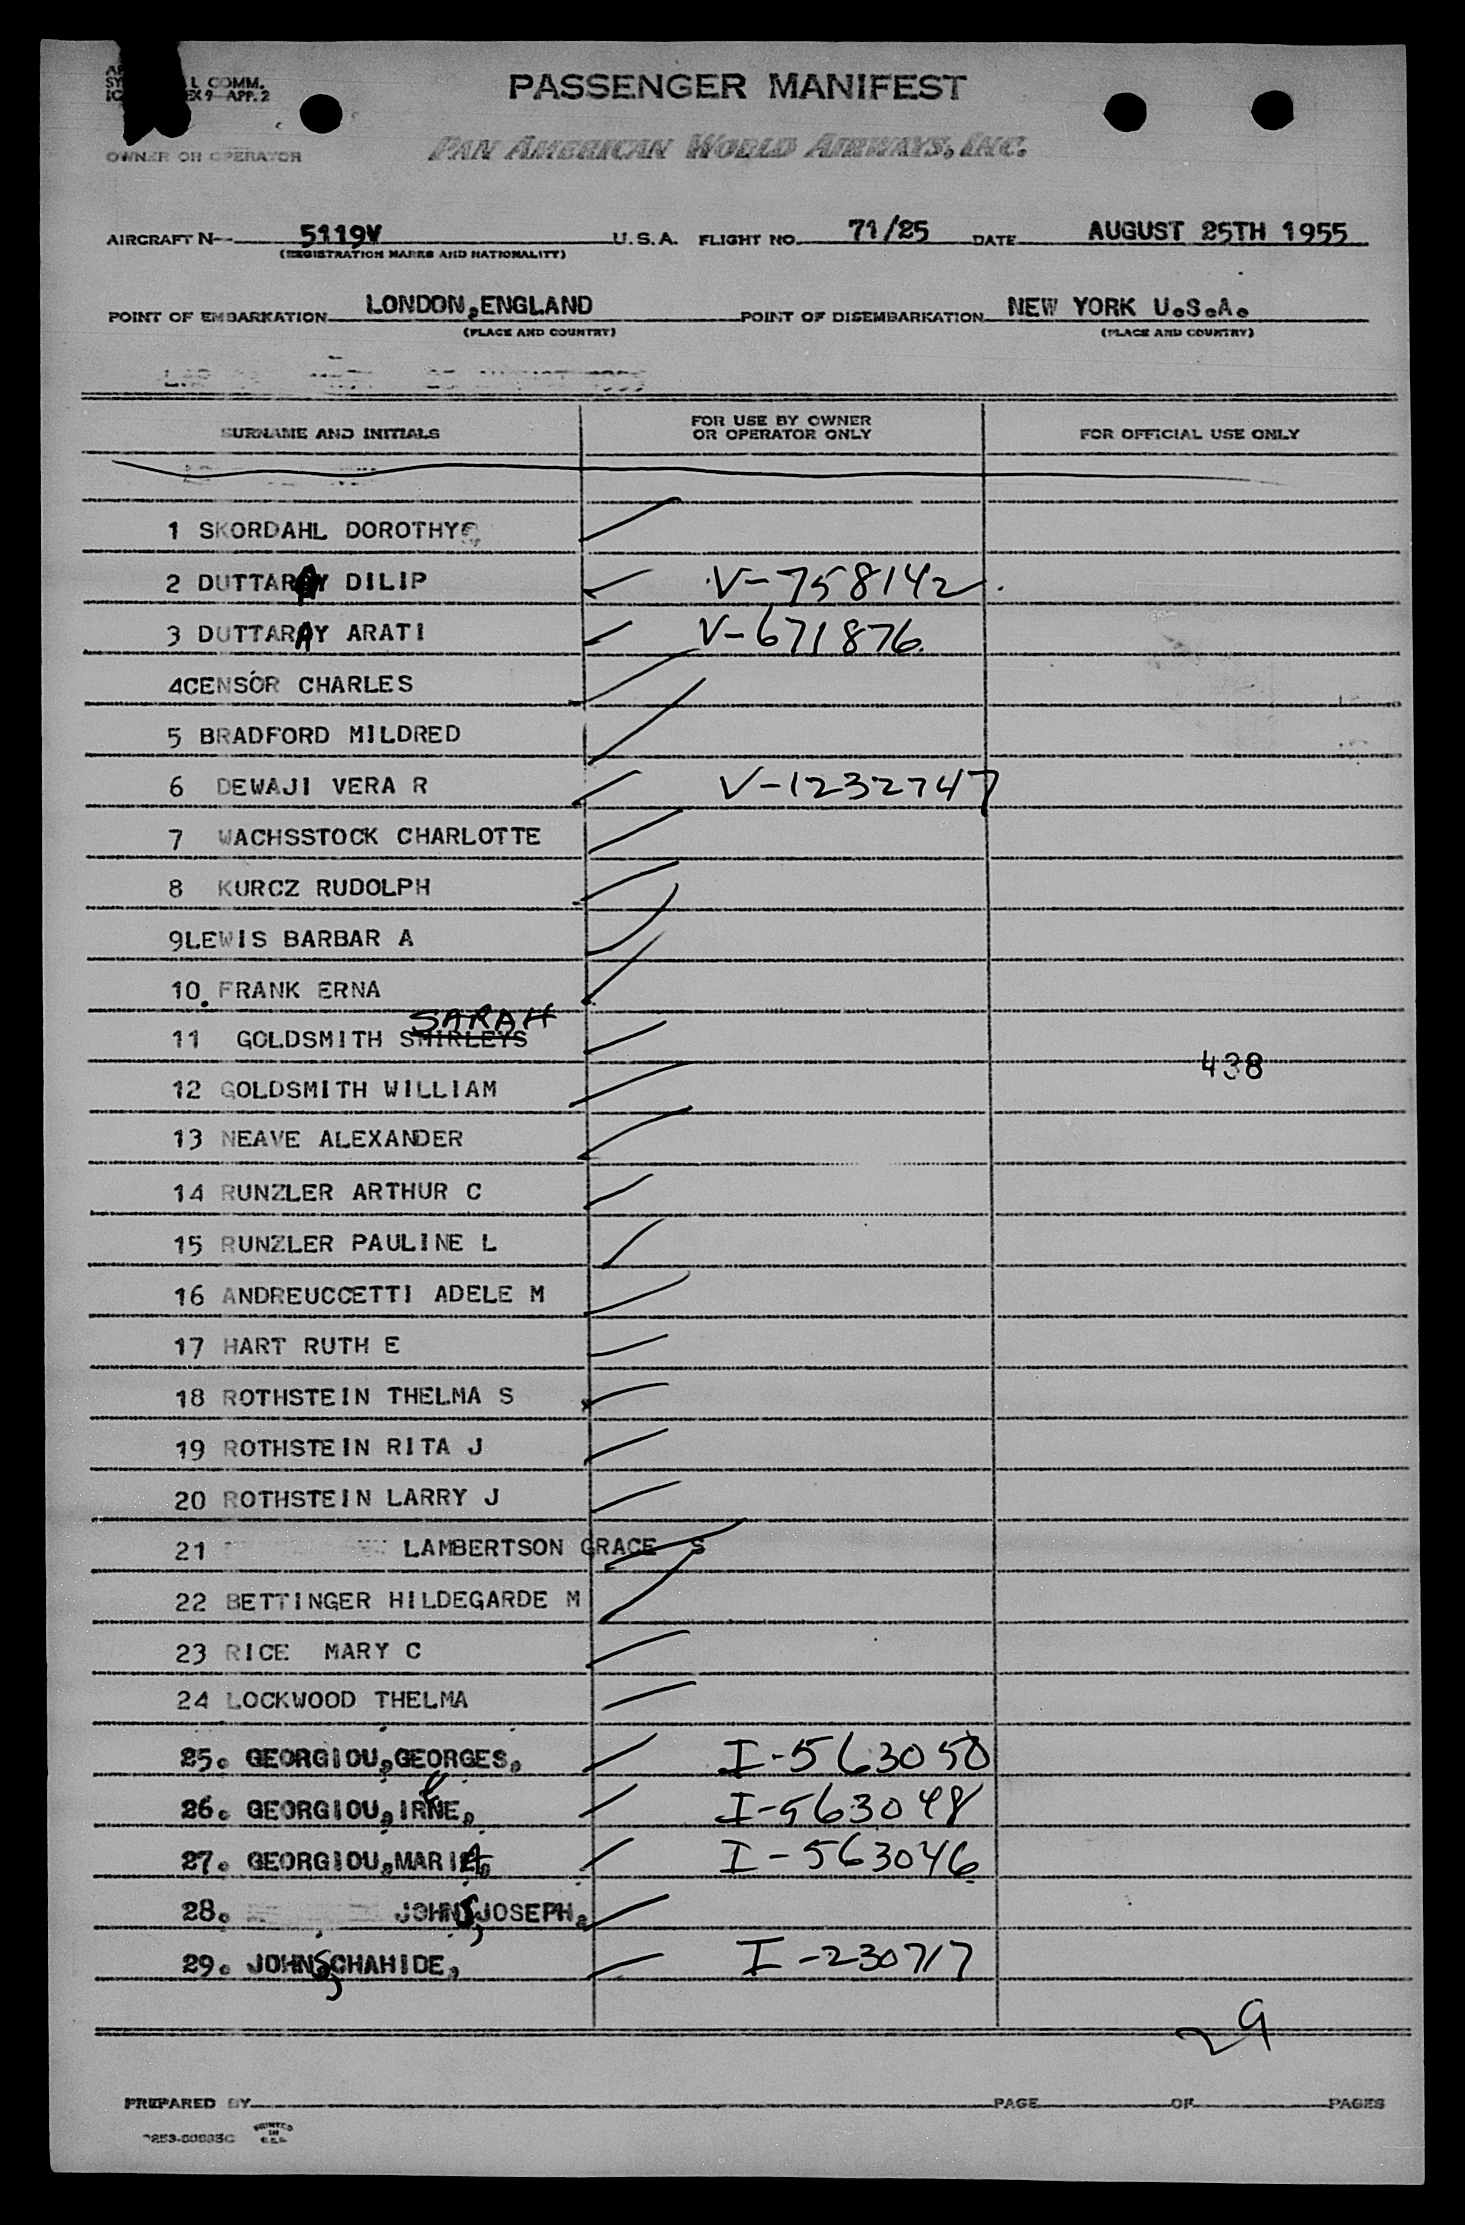 L COMM.
EX 9 APP. 2
PASSENGER MANIFEST
OWNER OR OPERATOR
PAN AMERICAN WORLD AIRWAYS, INC.
AIRCRAFT N-- 5119V U.S.A. FLIGHT NO. 71/25 DATE AUGUST 25TH 1955
(REGISTRATION MARKS AND NATIONALITY)
POINT OF EMBARKATION LONDON,ENGLAND POINT OF DISEMBARKATION NEW YORK U.S.A.
(PLACE AND COUNTRY) (PLACE AND COUNTRY)
SURNAME AND INITIALS FOR USE BY OWNER OR OPERATOR ONLY FOR OFFICIAL USE ONLY
1 SKORDAHL DOROTHY
2 DUTTARAY DILIP V-758142
3 DUTTARAY ARATI V-671876
4CENSOR CHARLES
5 BRADFORD MILDRED
6 DEWAJI VERA R V-1232747
7 WACHSSTOCK CHARLOTTE
8 KURCZ RUDOLPH
9LEWIS BARBAR A
10. FRANK ERNA
SARAH
11 GOLDSMITH SHIRLEYS
438
12 GOLDSMITH WILLIAM
13 NEAVE ALEXANDER
14 RUNZLER ARTHUR C
15 RUNZLER PAULINE L
16 ANDREUCCETTI ADELE M
17 HART RUTH E
18 ROTHSTEIN THELMA S
19 ROTHSTEIN RITA J
20 ROTHSTEIN LARRY J
21 LAMBERTSON GRACE S
22 BETTINGER HILDEGARDE M
23 RICE MARY C
24 LOCKWOOD THELMA
25. GEORGIOU,GEORGES, I-563050
26. GEORGIOU,IRENE, I-563048
27. GEORGIOU,MARIA, I-563046
28. JOHNS,JOSEPH,
29. JOHNS,CHAHIDE, I-230717
29
PREPARED BY PAGE OF PAGES
PRINTED
IN
U.S.A.